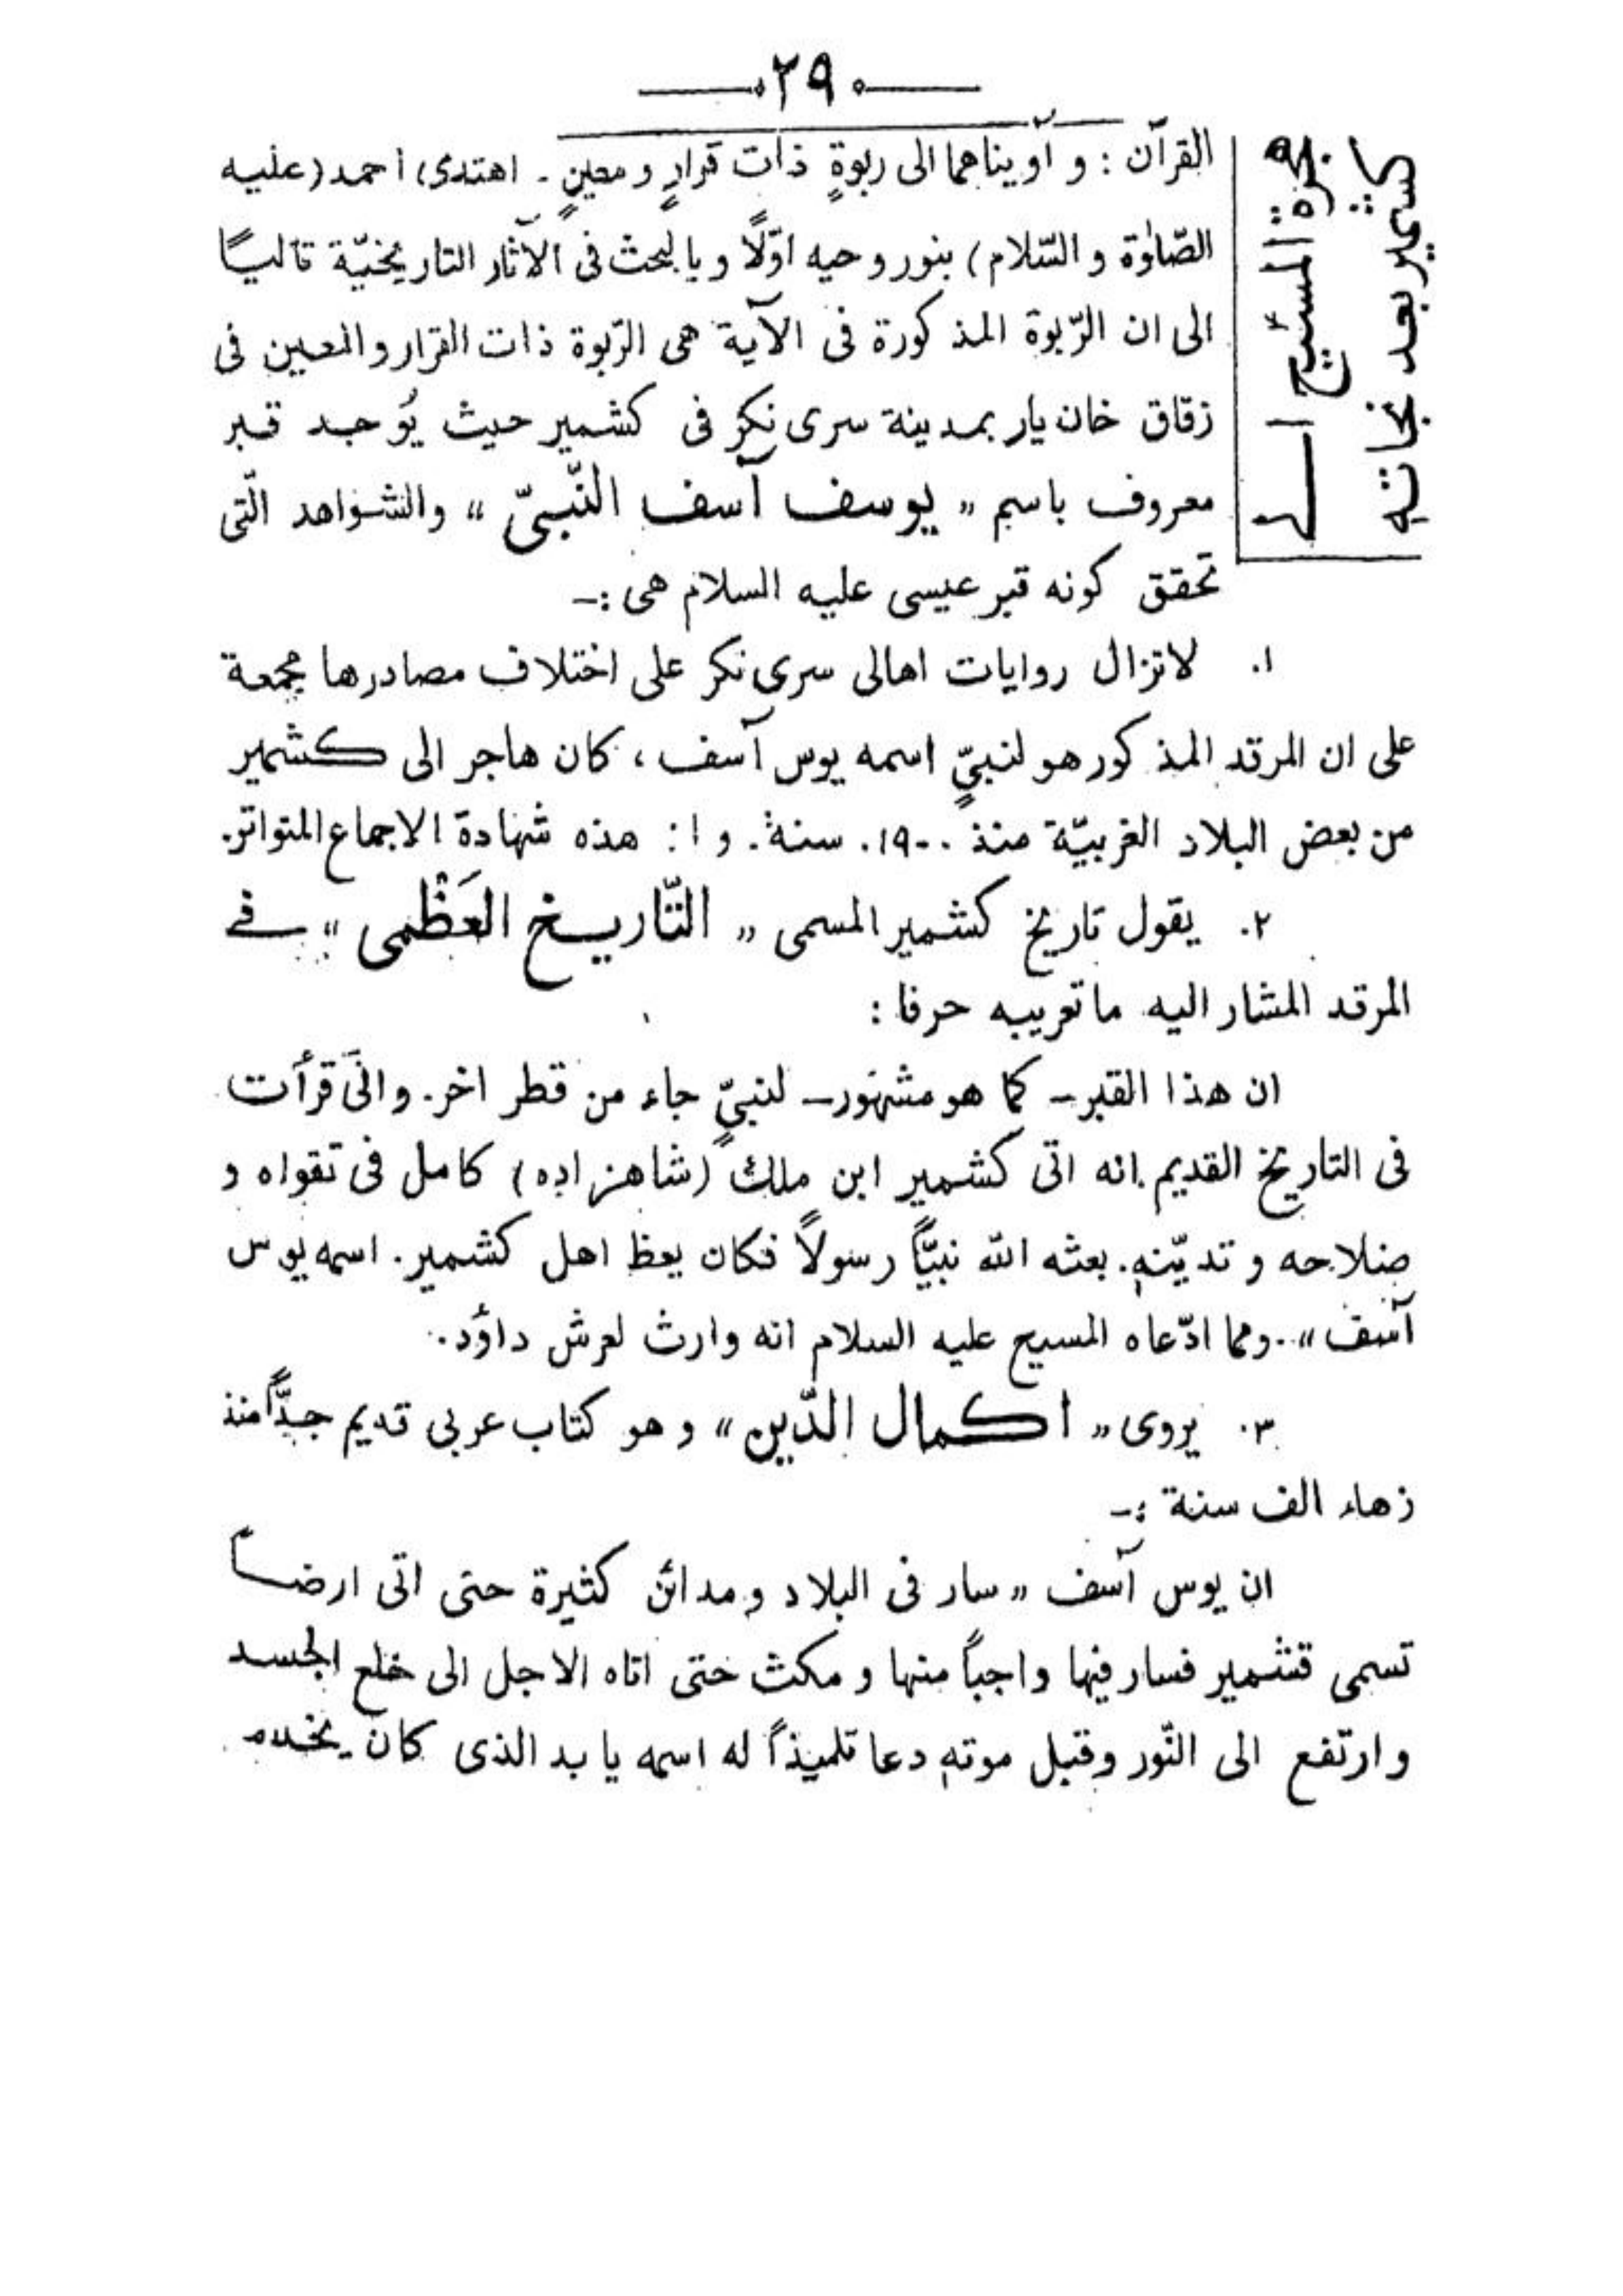 ٢٩
هجرة المسيح الى
كشمير بعد نجاته
القرآن : و آويناهما الى ربوةٍ ذات قرارٍ و معينٍ ـ اهتدى احمد (عليه
الصّلوٰة و السّلام) بنور وحيه اوّلًا وبالبحث فى الآثار التاريخيّة تاليًا
الى ان الرّبوة المذكورة فى الآية هى الرّبوة ذات القرار والمعين فى
زقاق خان يار بمدينة سرى نكر فى كشمير حيث يُوجد قبر
معروف باسم „ يوسف آسف النّبىّ “ والشواهد الّتى
تحقق كونه قبر عيسى عليه السلام هى :ـ
١. لاتزال روايات اهالى سرى نكر على اختلاف مصادرها مجمعة
على ان المرقد المذكور هو لنبىٍّ اسمه يوس آسف ، كان هاجر الى كشمير
من بعض البلاد الغربيّة منذ ١٩٠٠. سنة. و ا: هذه شهادة الاجماع المتواتر.
٢. يقول تاريخ كشمير المسمى „ التّاريخ العَظْمى “ فى
المرقد المشار اليه ماتعريبه حرفا :
ان هذا القبر ـ كما هو مشهور ـ لنبىٍّ جاء من قطر اخر. وانى قرأت
فى التاريخ القديم انه اتى كشمير ابن ملك (شاهزاده) كامل فى تقواه و
صلاحه و تديّنه. بعثه الله نبيًّا رسولًا فكان يعظ اهل كشمير. اسمه يوس
آسف “. ومما ادّعاه المسيح عليه السلام انه وارث لعرش داؤد.
٣. يروى „ اكمال الدّين “ و هو كتاب عربى قديم جدًّا منذ
زهاء الف سنة :ـ
ان يوس آسف „ سار فى البلاد و مدائن كثيرة حتى اتى ارضاً
تسمى قشمير فسار فيها واجباً منها و مكث حتى اتاه الاجل الى خلع الجسد
و ارتفع الى النّور وقبل موته دعا تلميذاً له اسمه يابد الذى كان يخدم